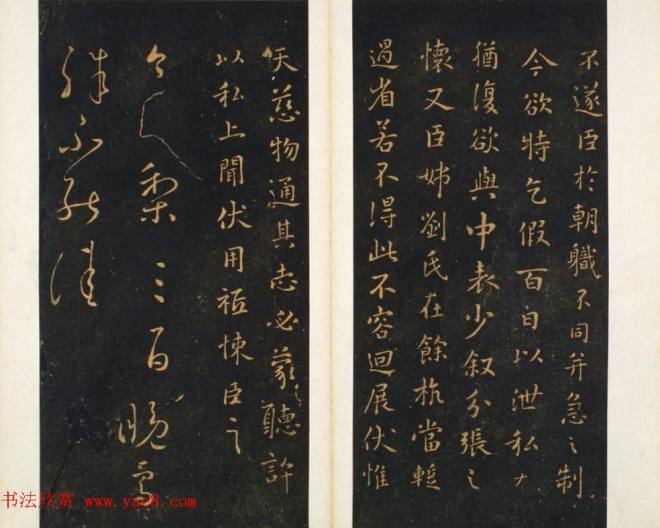 不遂臣於朝職不同并急之制
今欲特乞假百日以泄私
猶復欲與中表少叙分張之
懷又臣姊劉氏在餘杭當蹔
過省若不得此不容迴展伏惟
天慈物通其志必蒙聽許
以私上聞伏用祗悚臣之
今送梨三百晚雪
殊不能佳
书法欣赏 www.yac8.com